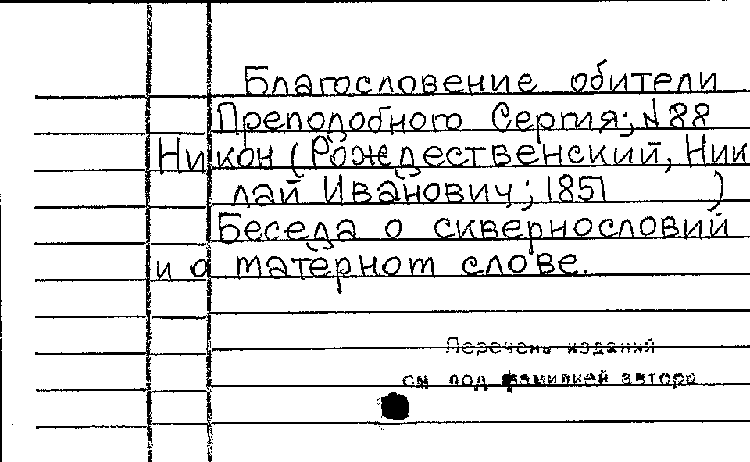 Благословение обители
Преподобного Сергия; N 88
Никон (Рождественский, Ник
лай Иванович; 1851 )
Беседа о сквернословий
и о матернот слове.
Перечень изданий
см под фамилией автора